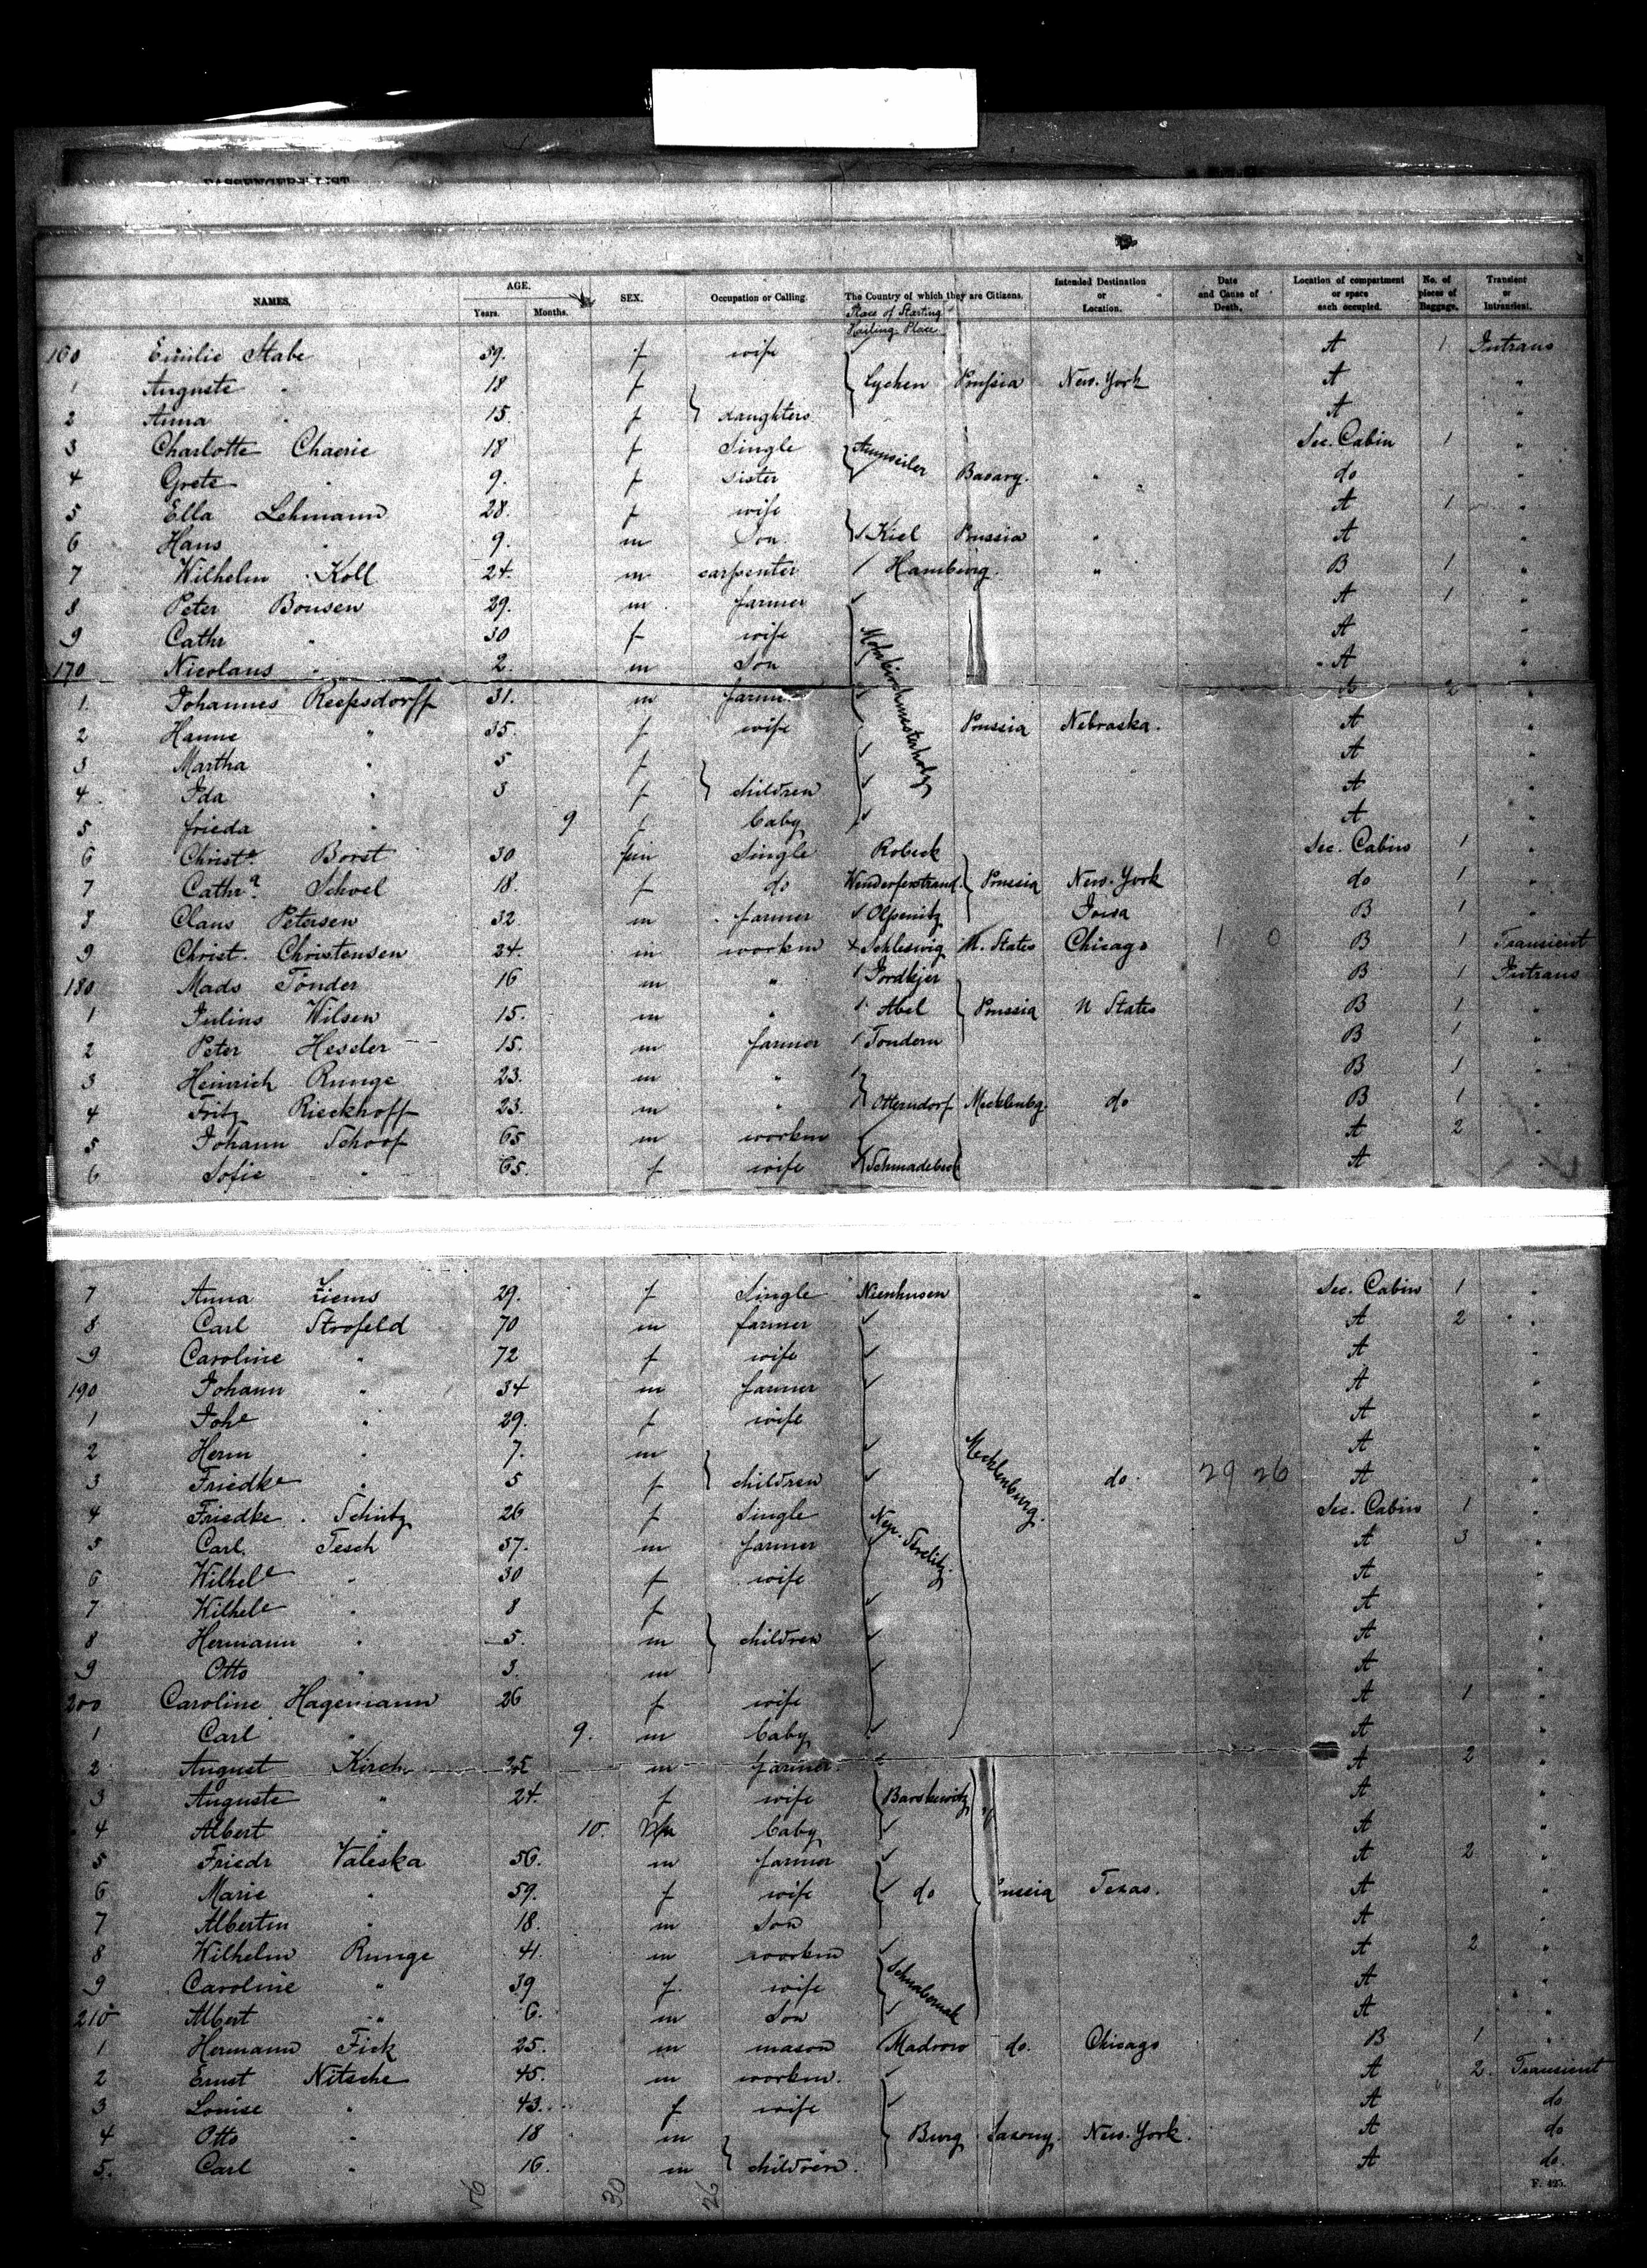 NAMES. AGE. SEX. Occupation or Calling. The Country of which they are Citizens. Intended Destination or Location. Date and Cause of Death. Location of compartment or space each occupied. No. of pieces of Baggage. Transient or Intransient.
Years. Months. Place of Starting
Hailing Place
160 Emilie Stabe 59. f wife A 1 Intrans
1 Auguste " 18 f Lychen Prussia New-York A "
2 Anna " 15 f daughters A "
3 Charlotte 18 f Single Sec. Cabin 1 "
4 Grete " 9. f Sister Bavary. " do "
5 Ella Lehmann 28. f wife A 1 "
6 Hans " 9. m Son. Kiel Prussia " A "
7 Wilhelm Koll 24. m carpenter Hamburg. " B 1 "
8 Peter Bousen 29. m farmer A 1 "
9 Cathr " 30 f wife A "
170 Nicolaus " 2. m Son A "
1. Johannes 31. m farmer A 2 "
2 Hanne " 35. f wife Prussia Nebraska. A "
3 Martha " 5 f A "
4 Ida " 3 f children A "
5 frieda " 9 f baby A "
6 Christe Borst 30 Single Robeck Sec. Cabin 1 "
7 Cathra Schoel 18. f do Prussia New-York do 1 "
8 Claus Petersen 32 m farmer Olpenitz Iowa B 1 "
9 Christ. Christensen 34. m workm Schleswig N. States Chicago 1 0 B 1 Transient
180 Mads Tönder 16 m " B 1 Intrans
1 Julius Wilsen 15. m " Abel Prussia N States B 1 "
2 Peter Hessler 15. m farmer Tondern B 1 "
3 Heinrich Runge 23. m " B 1 "
4 Fritz Rieckhoff 23. m " Otterndorf Mecklenbg. do B 1 "
5 Johann Schoof 65 m workm A 2 "
6 Sofie " 65. f wife Schmadebeck A "
7 Anna Ziems 29. f Single Nienhusen Sec. Cabin 1 "
8 Carl Strofeld 70 m farmer A 2 "
9 Caroline " 72 f wife A "
190 Johann " 34 m farmer A "
1 Johe " 29. f wife A "
2 Herm " 7. m Mecklenburg. A "
3 Friedke " 5 f children do 29 26 A "
4 Friedke Schütz 26 f Single Neu-Strelitz. Sec. Cabin 1 "
5 Carl. Tesch 37. m farmer A 3 "
6 Wilhele " 30 f wife A "
7 Wilhele " 8 f A "
8 Hermann " 5. m children A "
9 Otto " 3. m A "
200 Caroline Hagemann 26 f wife A 1 "
1 Carl " 9. m baby A "
2 August Kirch 25 m farmer A 2 "
3 Auguste " 24. f wife Barskewitz A "
4 Albert " 10. m baby A "
5 Friedr Valeska 56. m farmer A 2 "
6 Marie " 59. f wife do Prussia Texas. A "
7 Albertin " 18. m Son A "
8 Wilhelm Runge 41. m workm A 2 "
9 Caroline " 39 f. wife A "
210 Albert " 6. m Son A "
1 Hermann Fick 25. m mason do. Chicago B 1 "
2 Ernst Nitsche 45. m workm. A 2 Transient
3 Louise " 43. f wife A do
4 Otto " 18 m Burg Saxony. New-York. A do
5. Carl " 16. m children A do.
56 30 26
F. 425.